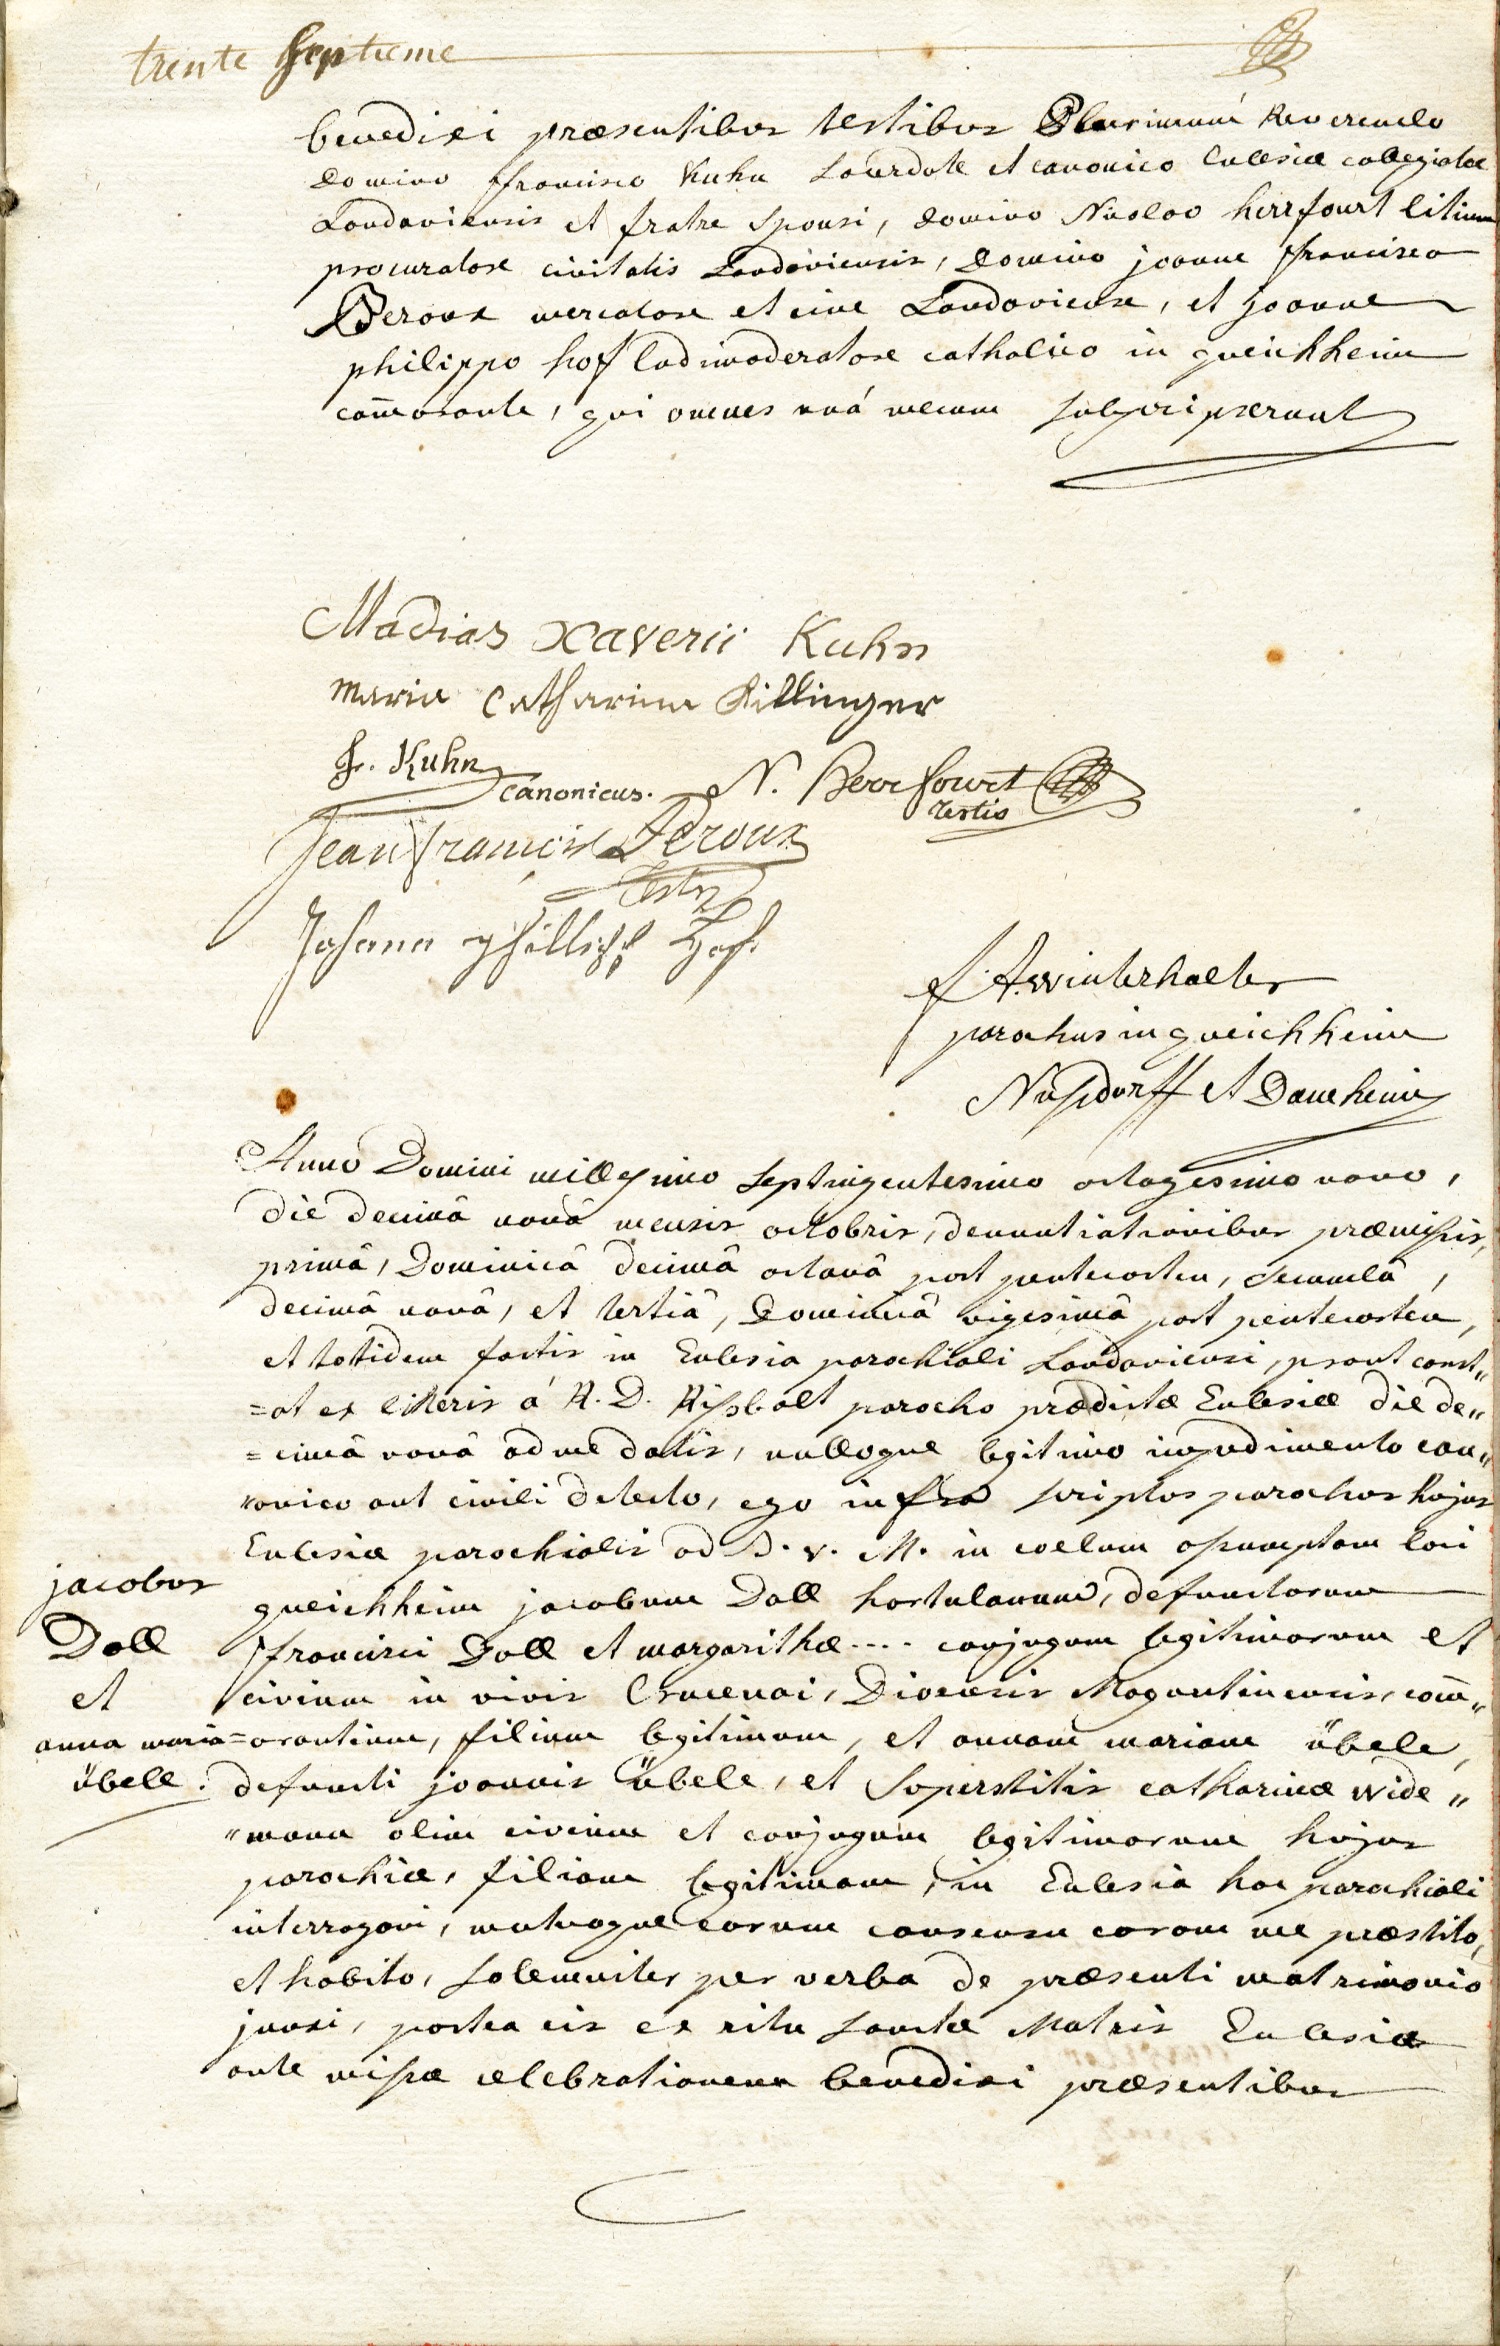 trente septieme
benedixi præsentibus testibus Plurimum Reverendo
Domino francisco Kuhn Sacerdote et canonico Ecclesiæ collegiatæ
Landaviensis et fratre sponsi, Domino Nicolao herrfourt litium
procuratore civitatis Landaviensis, Domino joanne francisco
Deroux mercatore et cive Landaviense, et joanne
philippo hof ludimoderatore catholico in queichheim
com̄orante, qui omnes unà mecum subscripserunt
Madias xaverii Kuhn
Maria Catharina Killinger
fr. Kuhn canonicus. N. Herrfourt testis
Jean francois Deroux
testis
Johann phillipp Hof.
f. A. winterhalter
parochus in queichheim
Nusdorff et Damheim
Anno Domini millesimo septingentesimo octogesimo nono,
die decimâ nonâ mensis octobris, denuntiationibus præmissis,
primâ, Dominicâ decimâ octavâ post pentecosten, secundâ,
decimâ nonâ, et tertiâ, Dominicâ vigesimâ post pentecosten,
et totidem factis in Ecclesia parochiali Landaviensi, prout const„
=at ex litteris à R. D. Rissbalt parocho prædictæ Ecclesiæ die de„
=cimâ nonâ ad me datis, nulloque legitimo impedimento can„
nonico aut civili detecto, ego infra scriptus parochus hujus
Ecclesiæ parochialis ad B. v. M. in coelum assumptam loci
queichheim jacobum Doll hortulanum, defunctorum
jacobus
Doll
et
anna maria
übele.
francisci Doll et margarithæ .... conjugum legitimorum et
civium in vivis Crucenai, Dioecesis Moguntinensis, com̄„
=orantium, filium legitimum, et annam mariam übele,
defuncti joannis übele, et superstitis catharinæ wide„
„mann olim civium et conjugum legitimorum hujus
parochiæ, filiam legitimam, in Ecclesia hac parochiali
interrogavi, mutuoque eorum consensu coram me præstito,
et habito, solemniter per verba de præsenti matrimonio
junxi, postea eis ex ritu sanctæ Matris Ecclesiæ
ante missæ celebrationem benedixi præsentibus